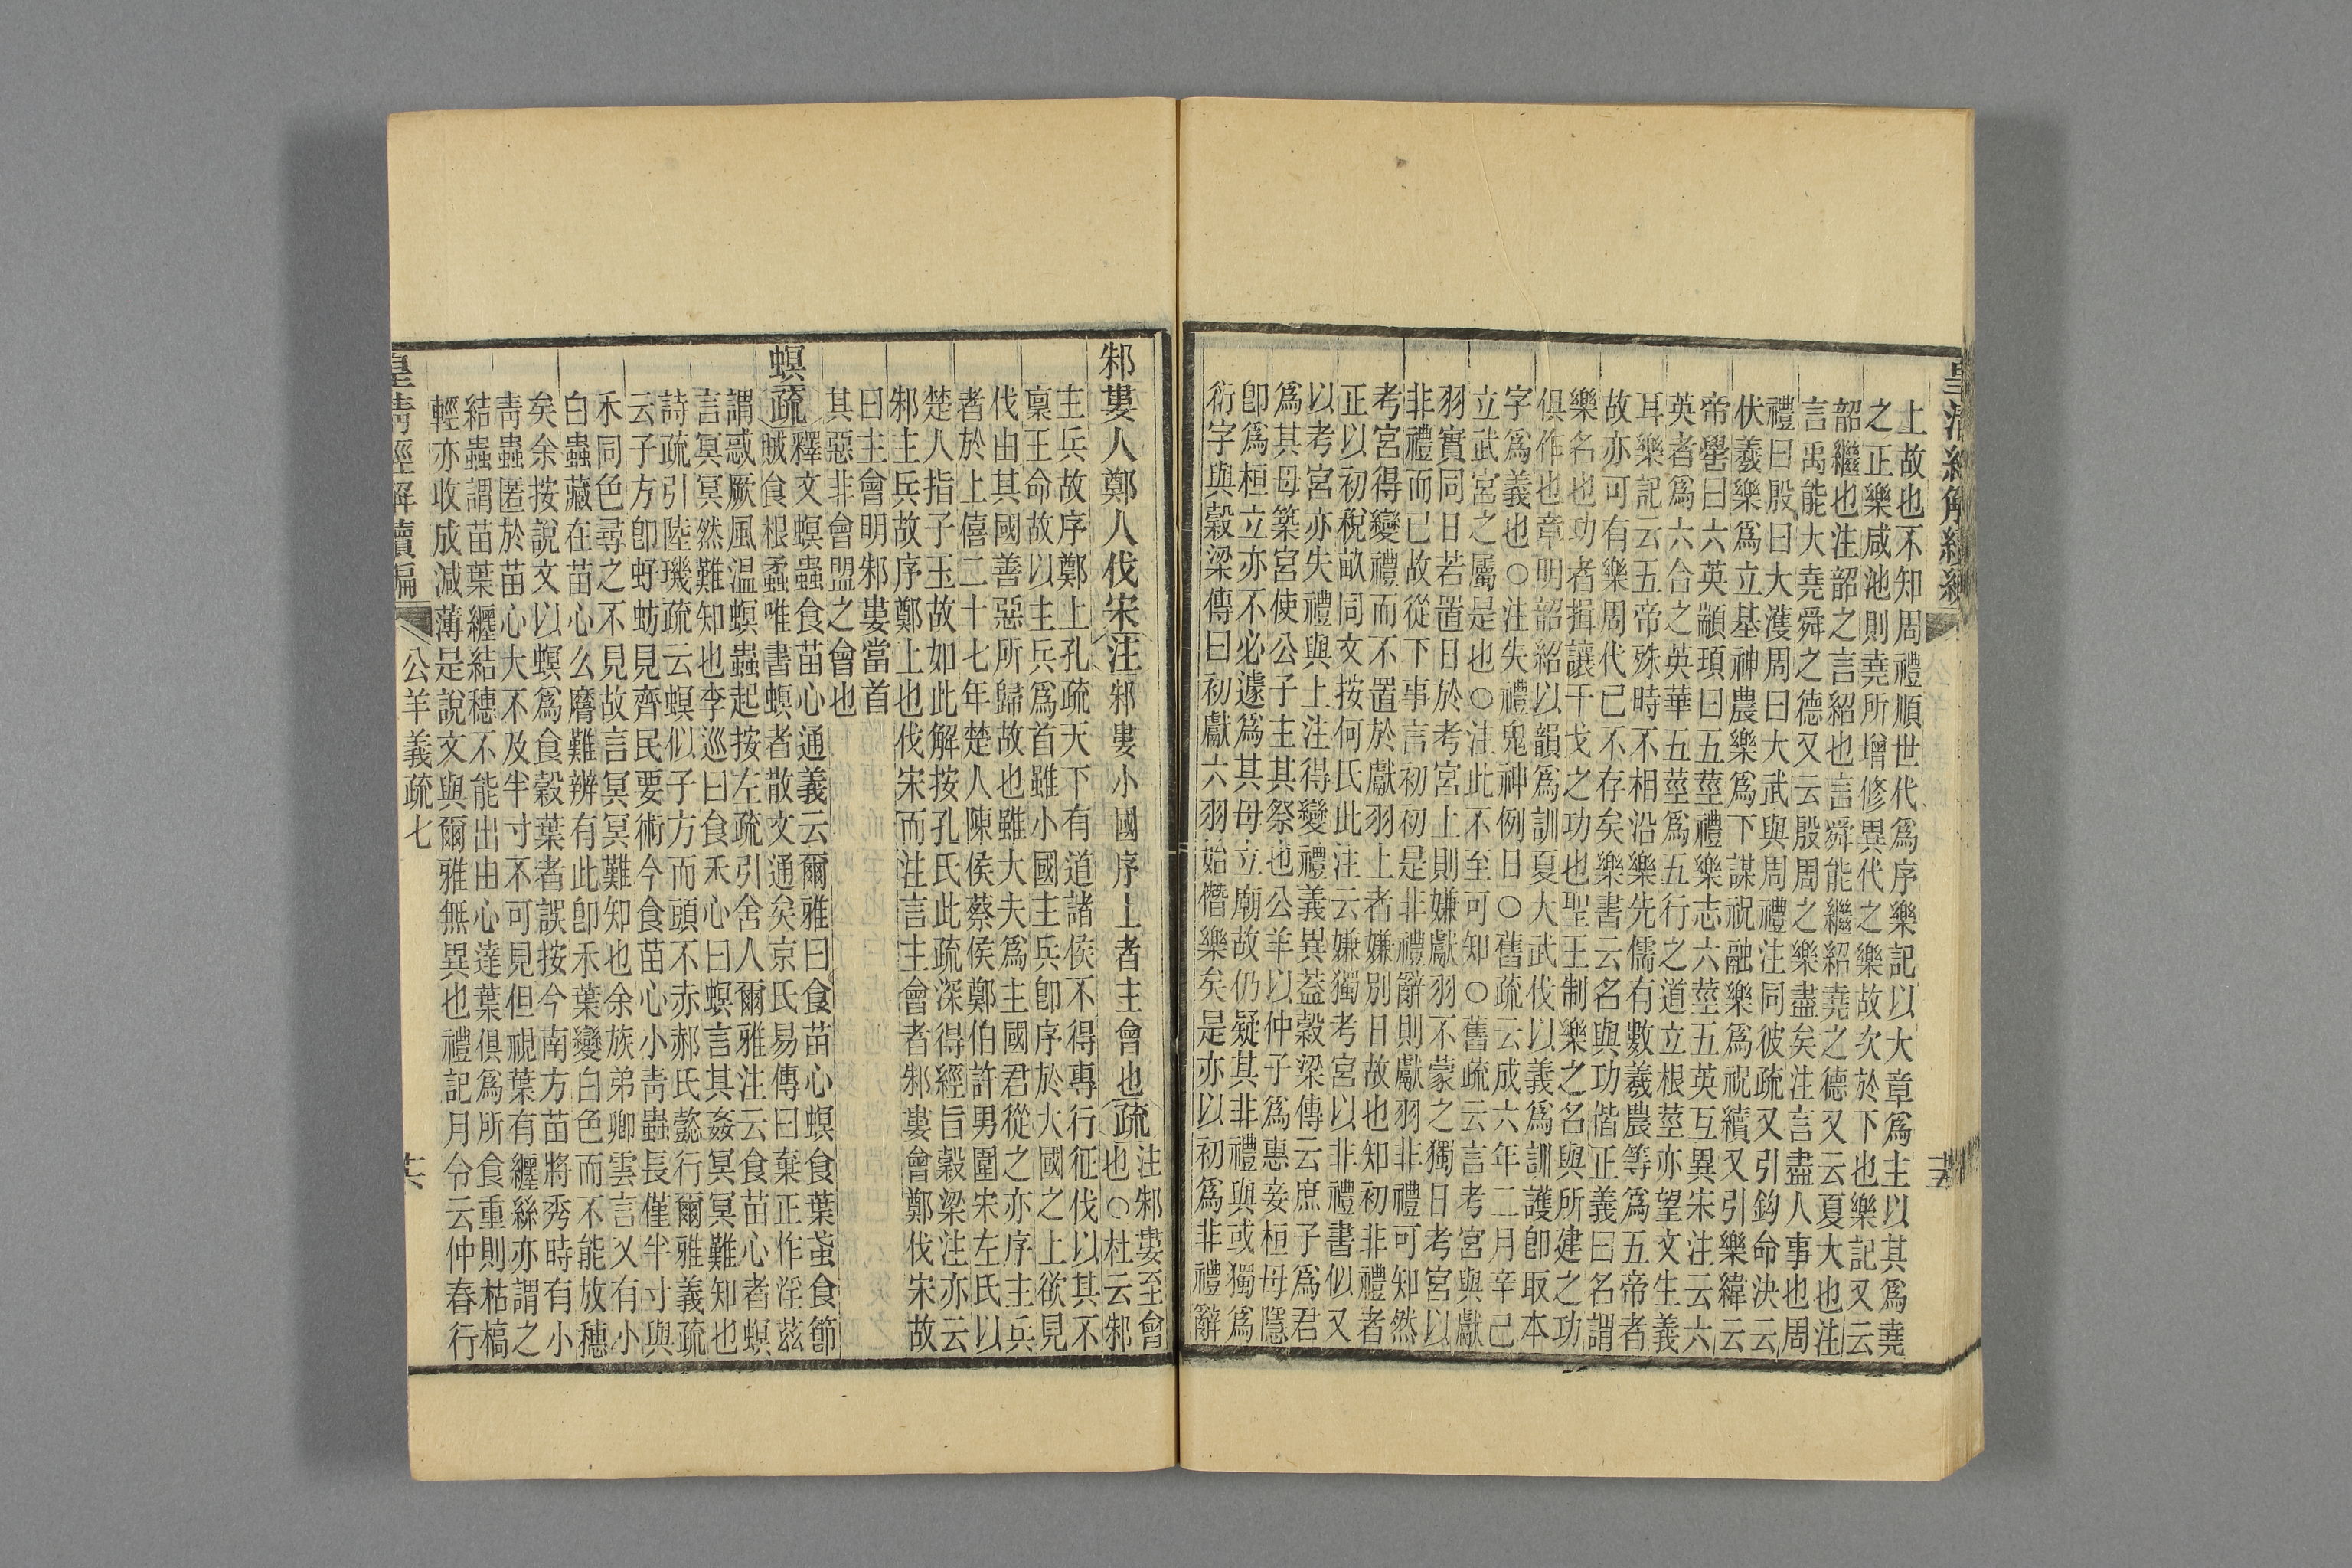 皇清經解續編
上故也不知周禮順世代爲序樂記以大章爲主以其爲堯
之正樂咸池則堯所增修異代之樂故次於下也樂記又云
韶繼也注韶之言紹也言舜能繼紹堯之德又云夏大也注
言禹能大堯舜之德又云殷周之樂盡矣注言盡人事也周
禮曰殷曰大濩周曰大武與周禮注同彼疏又引鈎命決云
伏羲樂爲立基神農樂爲下謀祝融樂爲祝續又引樂緯云
帝嚳曰六英顓頊曰五莖禮樂志六莖五英互異宋注云六
英者爲六合之英華五莖爲五行之道立根莖亦望文生義
耳樂記云五帝殊時不相沿樂先儒有數羲農等爲五帝者
故亦可有樂周代已不存矣樂書云名與功偕正義曰名謂
樂名也功者揖讓干戈之功也聖王制樂之名與所建之功
俱作也章明韶紹以韻爲訓夏大武伐以義爲訓護卽取本
字爲義也○注失禮鬼神例日○舊疏云成六年二月辛已
立武宮之屬是也○注此不至可知○舊疏云言考宮與獻
羽實同日若置日於考宮上則嫌獻羽不蒙之獨日考宮以
非禮而已故從下事言初初是非禮辭則獻羽非禮可知然
考宮得變禮而不置於獻羽上者嫌別日故也知初非禮者
正以初稅畝同文按何氏此注云嫌獨考宮以非禮書似又
以考宮亦失禮與上注得變禮義異蓋穀梁傳云庶子爲君
爲其母築宮使公子主其祭也公羊以仲子爲惠妾桓母隱
卽爲桓立亦不必遽爲其母立廟故仍疑其非禮與或獨爲
衍字與穀梁傳曰初獻六羽始僭樂矣是亦以初爲非禮辭
邾婁人鄭人伐宋注邾婁小國序上者主會也疏注邾婁至會
也○杜云邾
主兵故序鄭上孔疏天下有道諸侯不得專行征伐以其不
稟王命故以主兵爲首雖小國主兵卽序於大國之上欲見
伐由其國善惡所歸故也雖大夫爲主國君從之亦序主兵
者於上僖二十七年楚人陳侯蔡侯鄭伯許男圍宋左氏以
楚人指子玉故如此解按孔氏此疏深得經旨穀梁注亦云
邾主兵故序鄭上也伐宋而注言主會者邾婁會鄭伐宋故
曰主會明邾婁當首
其惡非會盟之會也
螟疏釋文螟蟲食苗心通義云爾雅曰食苗心螟食葉蟘食節
賊食根蟊唯書螟者散文通矣京氏易傳曰棄正作淫茲
謂惑厥風温螟蟲起按左疏引舍人爾雅注云食苗心者螟
言冥冥然難知也李巡曰食禾心曰螟言其姦冥冥難知也
詩疏引陸璣疏云螟似子方而頭不赤郝氏懿行爾雅義疏
云子方卽虸蚄見齊民要術今食苗心小靑蟲長僅半寸與
禾同色尋之不見故言冥冥難知也余族弟卿雲言乂有小
白蟲藏在苗心么麿難辨有此卽禾葉變白色而不能放穗
矣余按說文以螟爲食穀葉者誤按今南方苗將秀時有小
靑蟲匿於苗心大不及半寸不可見但視葉有纒絲亦謂之
結蟲謂苗葉纒結穗不能出由心達葉俱爲所食重則枯槁
輕亦收成減薄是說文與爾雅無異也禮記月令云仲春行
皇清經解續編
公羊義疏七